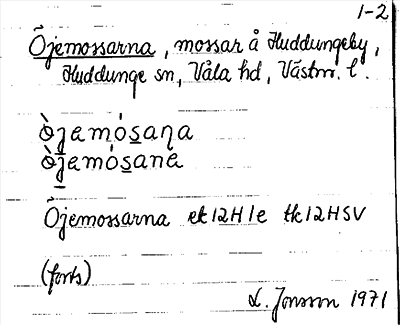 1-2
Öjemossarna, mossar å Huddungeby,
Huddunge sn, Våla hd, Västm. l.
ò̀jemósaɳa
ò̀jemósane
Öjemossarna ek 12H1e tk 12HSV
(forts)
L. Jonsson 1971